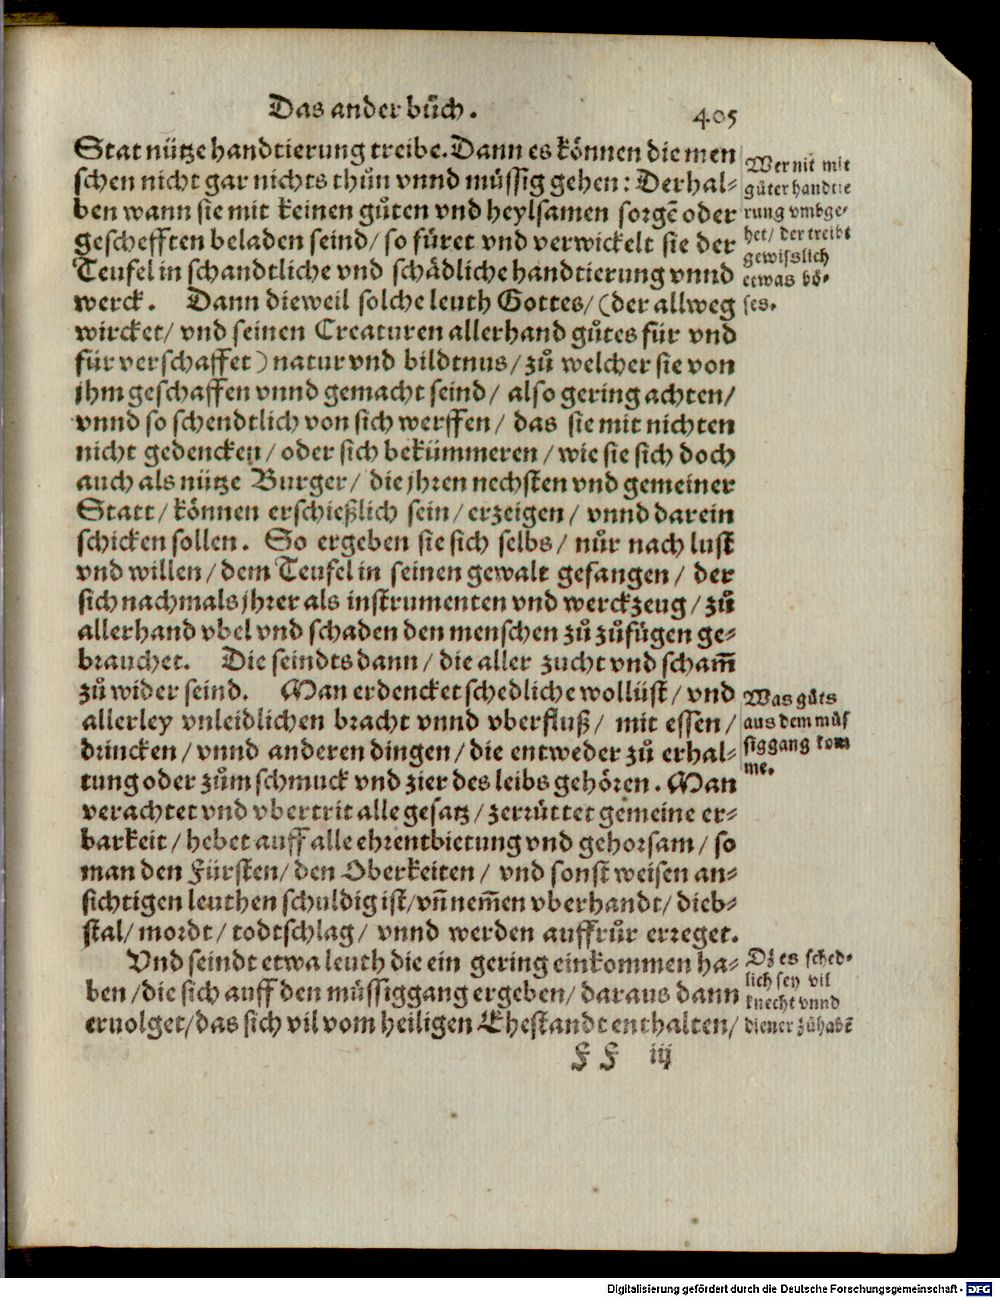 Das ander bůch.
405
Stat nütze handtierung treibe. Dann es können die men
schen nicht gar nichts thůn vnnd müssig gehen: Derhal-
ben wann sie mit keinen gůten vnd heylsamen sorgē oder
geschefften beladen seind/ so füret vnd verwickelt sie der
Teufel in schandtliche vnd schädliche handtierung vnnd
werck. Dann dieweil solche leuth Gottes/ (der allweg
wircket/ vnd seinen Creaturen allerhand gůtes für vnd
für verschaffet) natur vnd bildtnus/ zů welcher sie von
jhm geschaffen vnnd gemacht seind/ also gering achten/
vnnd so schendtlich von sich werffen/ das sie mit nichten
nicht gedencken/ oder sich bekümmeren/ wie sie sich doch
auch als nütze Burger/ die jhren nechsten vnd gemeiner
Statt/ können erschießlich sein/ erzeigen/ vnnd darein
schicken sollen. So ergeben sie sich selbs/ nůr nach lust
vnd willen/ dem Teufel in seinen gewalt gefangen/ der
sich nachmals jhrer als instrumenten vnd werckzeug/ zů
allerhand vbel vnd schaden den menschen zů zůfügen ge-
brauchet. Die seindts dann/ die aller zucht vnd scham̄
zů wider seind. Man erdencket schedliche wollüst/ vnd
allerley vnleidlichen bracht vnnd vberfluß/ mit essen/
drincken/ vnnd anderen dingen/ die entweder zů erhal-
tung oder zům schmuck vnd zier des leibs gehören. Man
verachtet vnd vbertrit alle gesatz/ zerrüttet gemeine er-
barkeit/ hebet auff alle ehrentbietung vnd gehorsam/ so
man den Fürsten/ den Oberkeiten/ vnd sonst weisen an-
sichtigen leuthen schuldig ist/ vn̄ nem̄en vberhandt/ dieb-
stal/ mordt/ todtschlag/ vnnd werden auffrůr erreget.
Vnd seindt etwa leuth die ein gering einkommen ha-
ben/ die sich auff den müssiggang ergeben/ daraus dann
eruolget/ das sich vil vom heiligen Ehestandt enthalten/
FF iij
Wer nit mit
gůter handtie
rung vmbge-
het/ der treibt
gewißlich
etwas bö-
ses.
Was gůts
aus dem müs
siggang kom
me.
Dz es sched-
lich sey vil
knecht vnnd
diener zůhabē
Digitalisierung gefördert durch die Deutsche Forschungsgemeinschaft - DFG